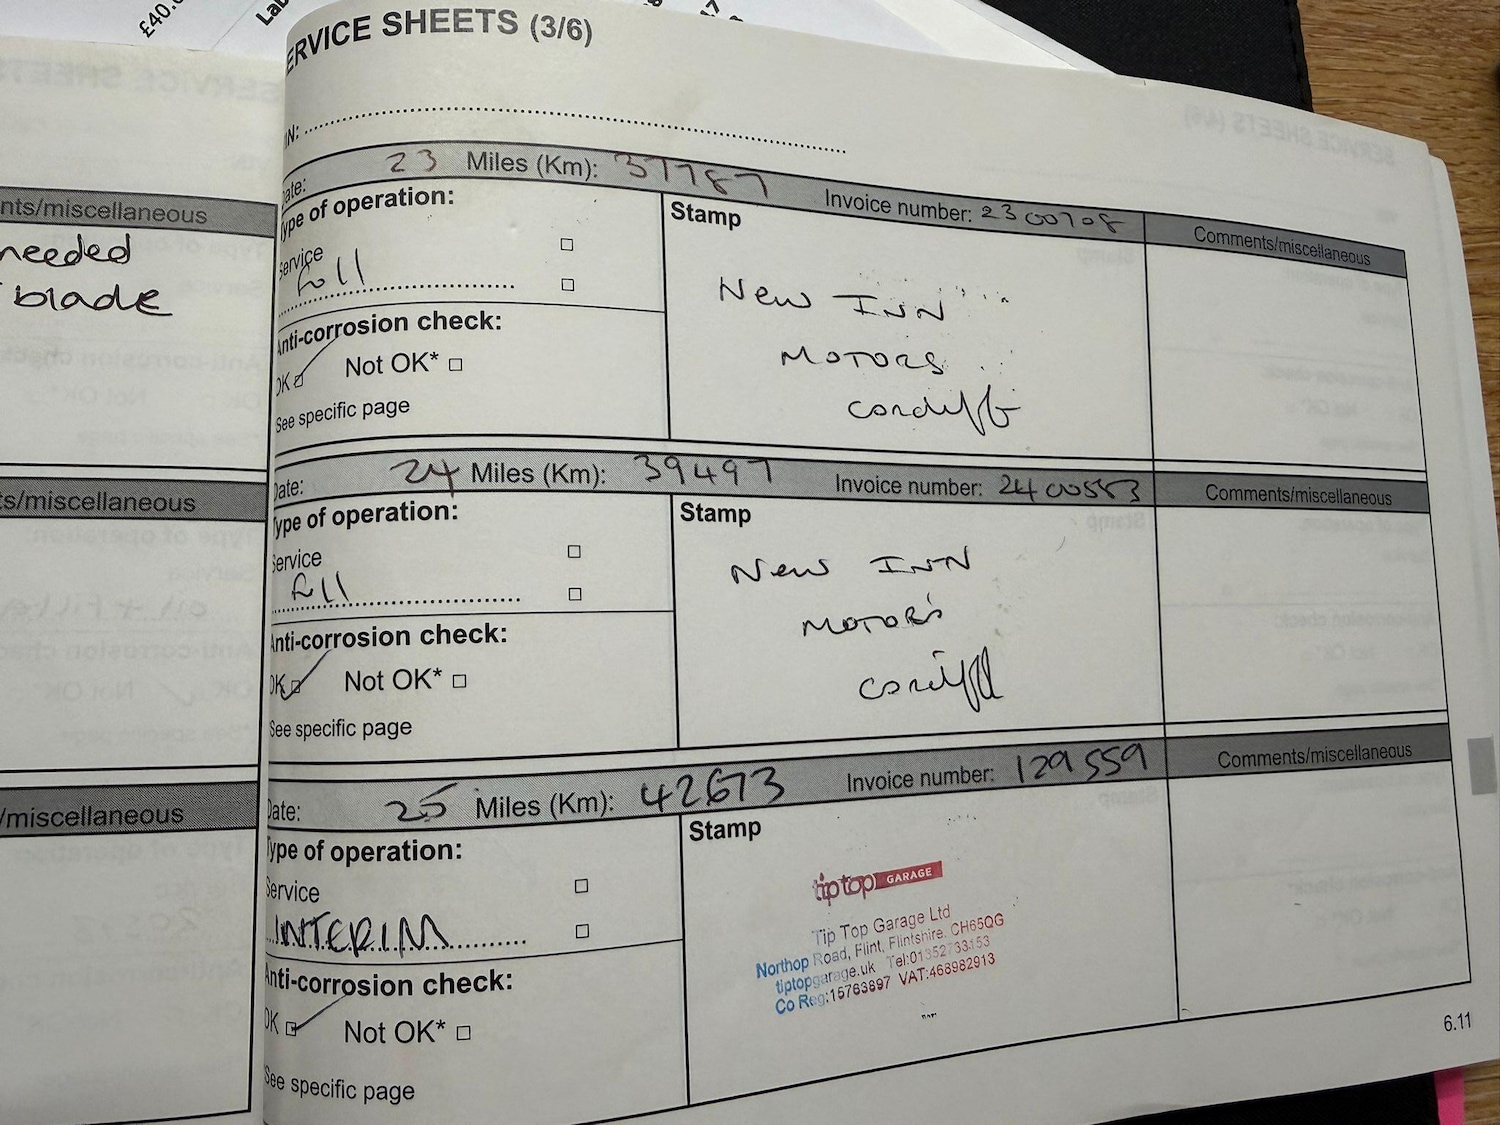 £40.
Lab
SERVICE SHEETS (3/6)
IN:
nts/miscellaneous
needed
blade
ts/miscellaneous
/miscellaneous
Date: 23 Miles (Km): 37787 Invoice number: 2300708
Comments/miscellaneous
Type of operation:
Service
full
Anti-corrosion check:
OK Not OK*
See specific page
Stamp
New INN
MOTORS
Cardiff
Date: 24 Miles (Km): 39497 Invoice number: 2400553
Comments/miscellaneous
Type of operation:
Service
full
Anti-corrosion check:
OK Not OK*
See specific page
Stamp
New INN
MOTORS
Cardiff
Date: 25 Miles (Km): 42673 Invoice number: 129559
Comments/miscellaneous
Type of operation:
Service
INTERIM
Anti-corrosion check:
OK Not OK*
See specific page
Stamp
tiptop GARAGE
Tip Top Garage Ltd
Northop Road, Flint, Flintshire. CH65QG
tiptopgarage.uk Tel:01352733153
Co Reg:15763897 VAT:468982913
6.11